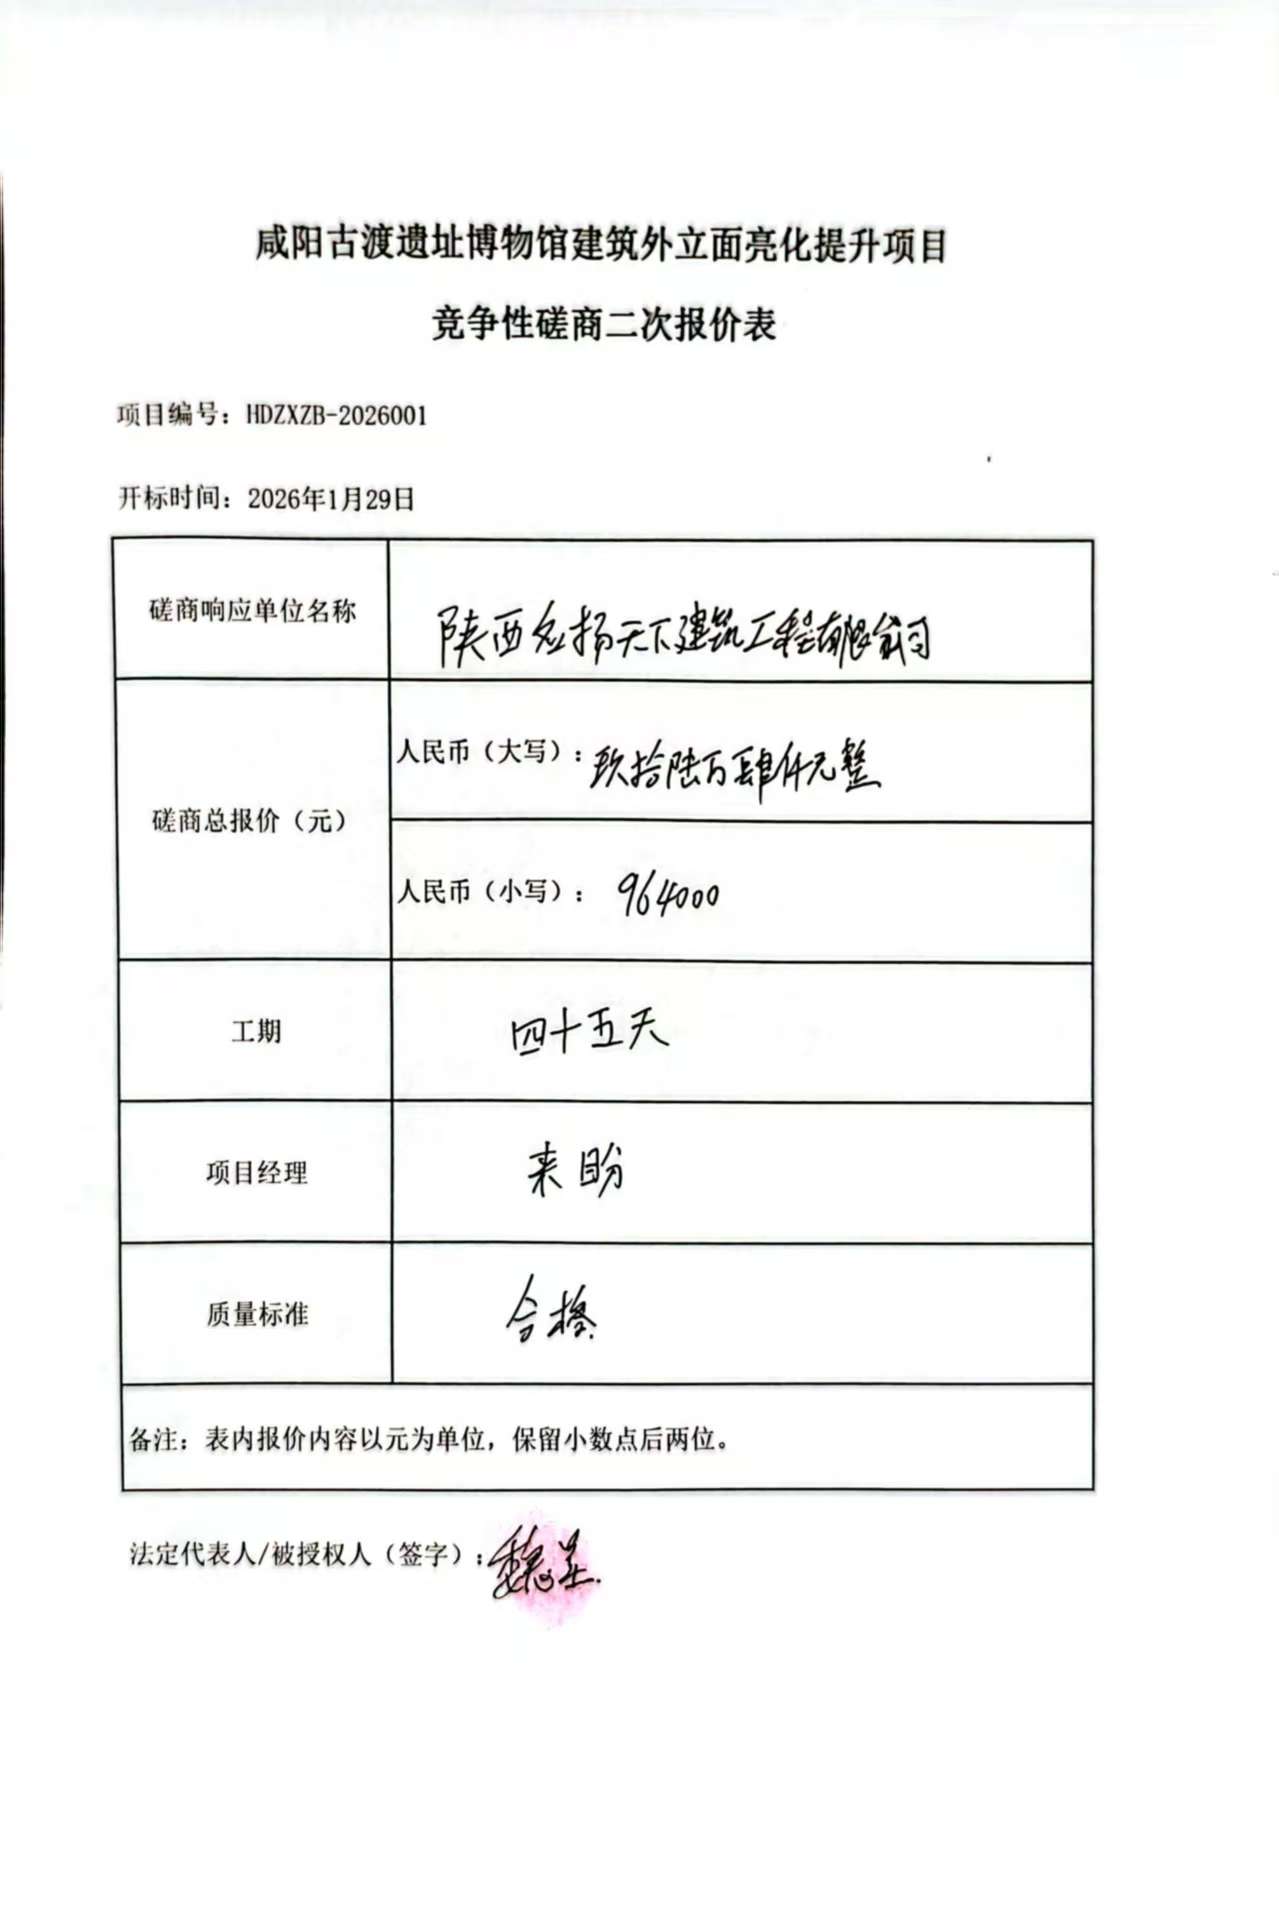 咸阳古渡遗址博物馆建筑外立面亮化提升项目
竞争性磋商二次报价表
项目编号：HDZXZB-2026001
开标时间：2026年1月29日
磋商响应单位名称
陕西名扬天下建筑工程有限公司
磋商总报价（元）
人民币（大写）：玖拾陆万肆仟元整
人民币（小写）：964000
工期
四十五天
项目经理
来盼
质量标准
合格
备注：表内报价内容以元为单位，保留小数点后两位。
法定代表人/被授权人（签字）：魏